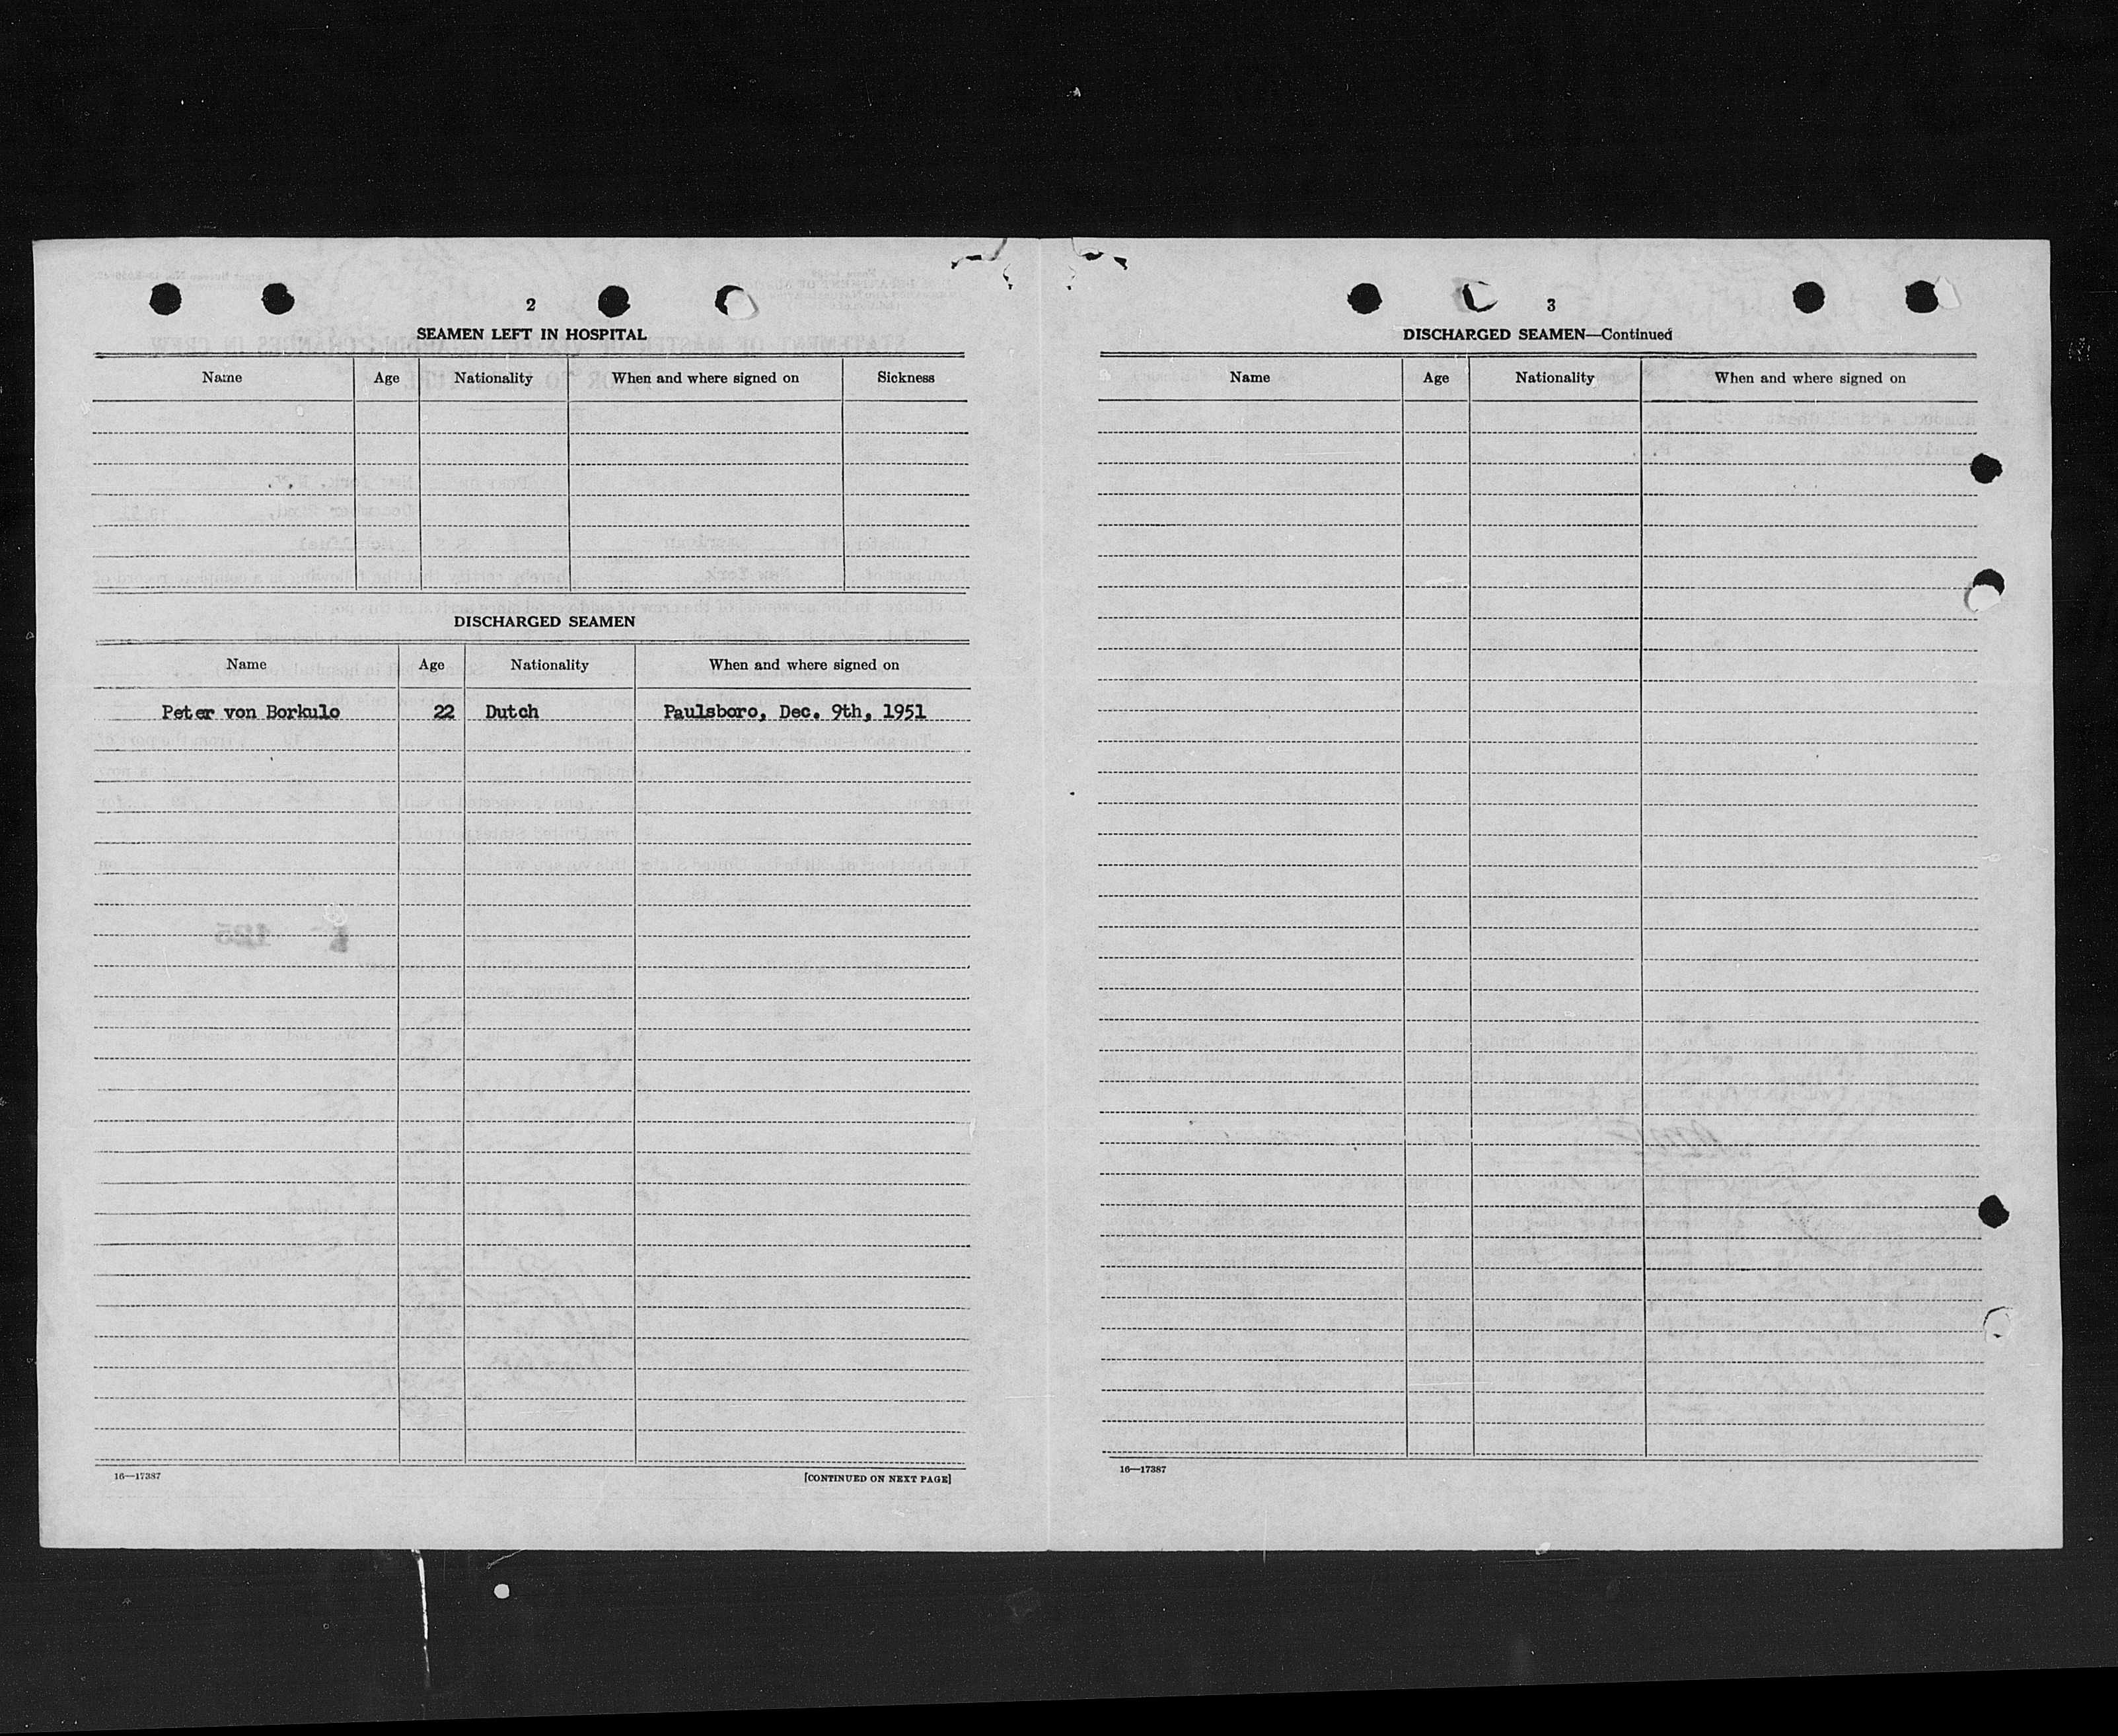 2
SEAMEN LEFT IN HOSPITAL
Name Age Nationality When and where signed on Sickness
DISCHARGED SEAMEN
Name Age Nationality When and where signed on
Peter von Borkulo 22 Dutch Paulsboro, Dec. 9th, 1951
16—17387 [CONTINUED ON NEXT PAGE]
3
DISCHARGED SEAMEN—Continued
Name Age Nationality When and where signed on
16—17387